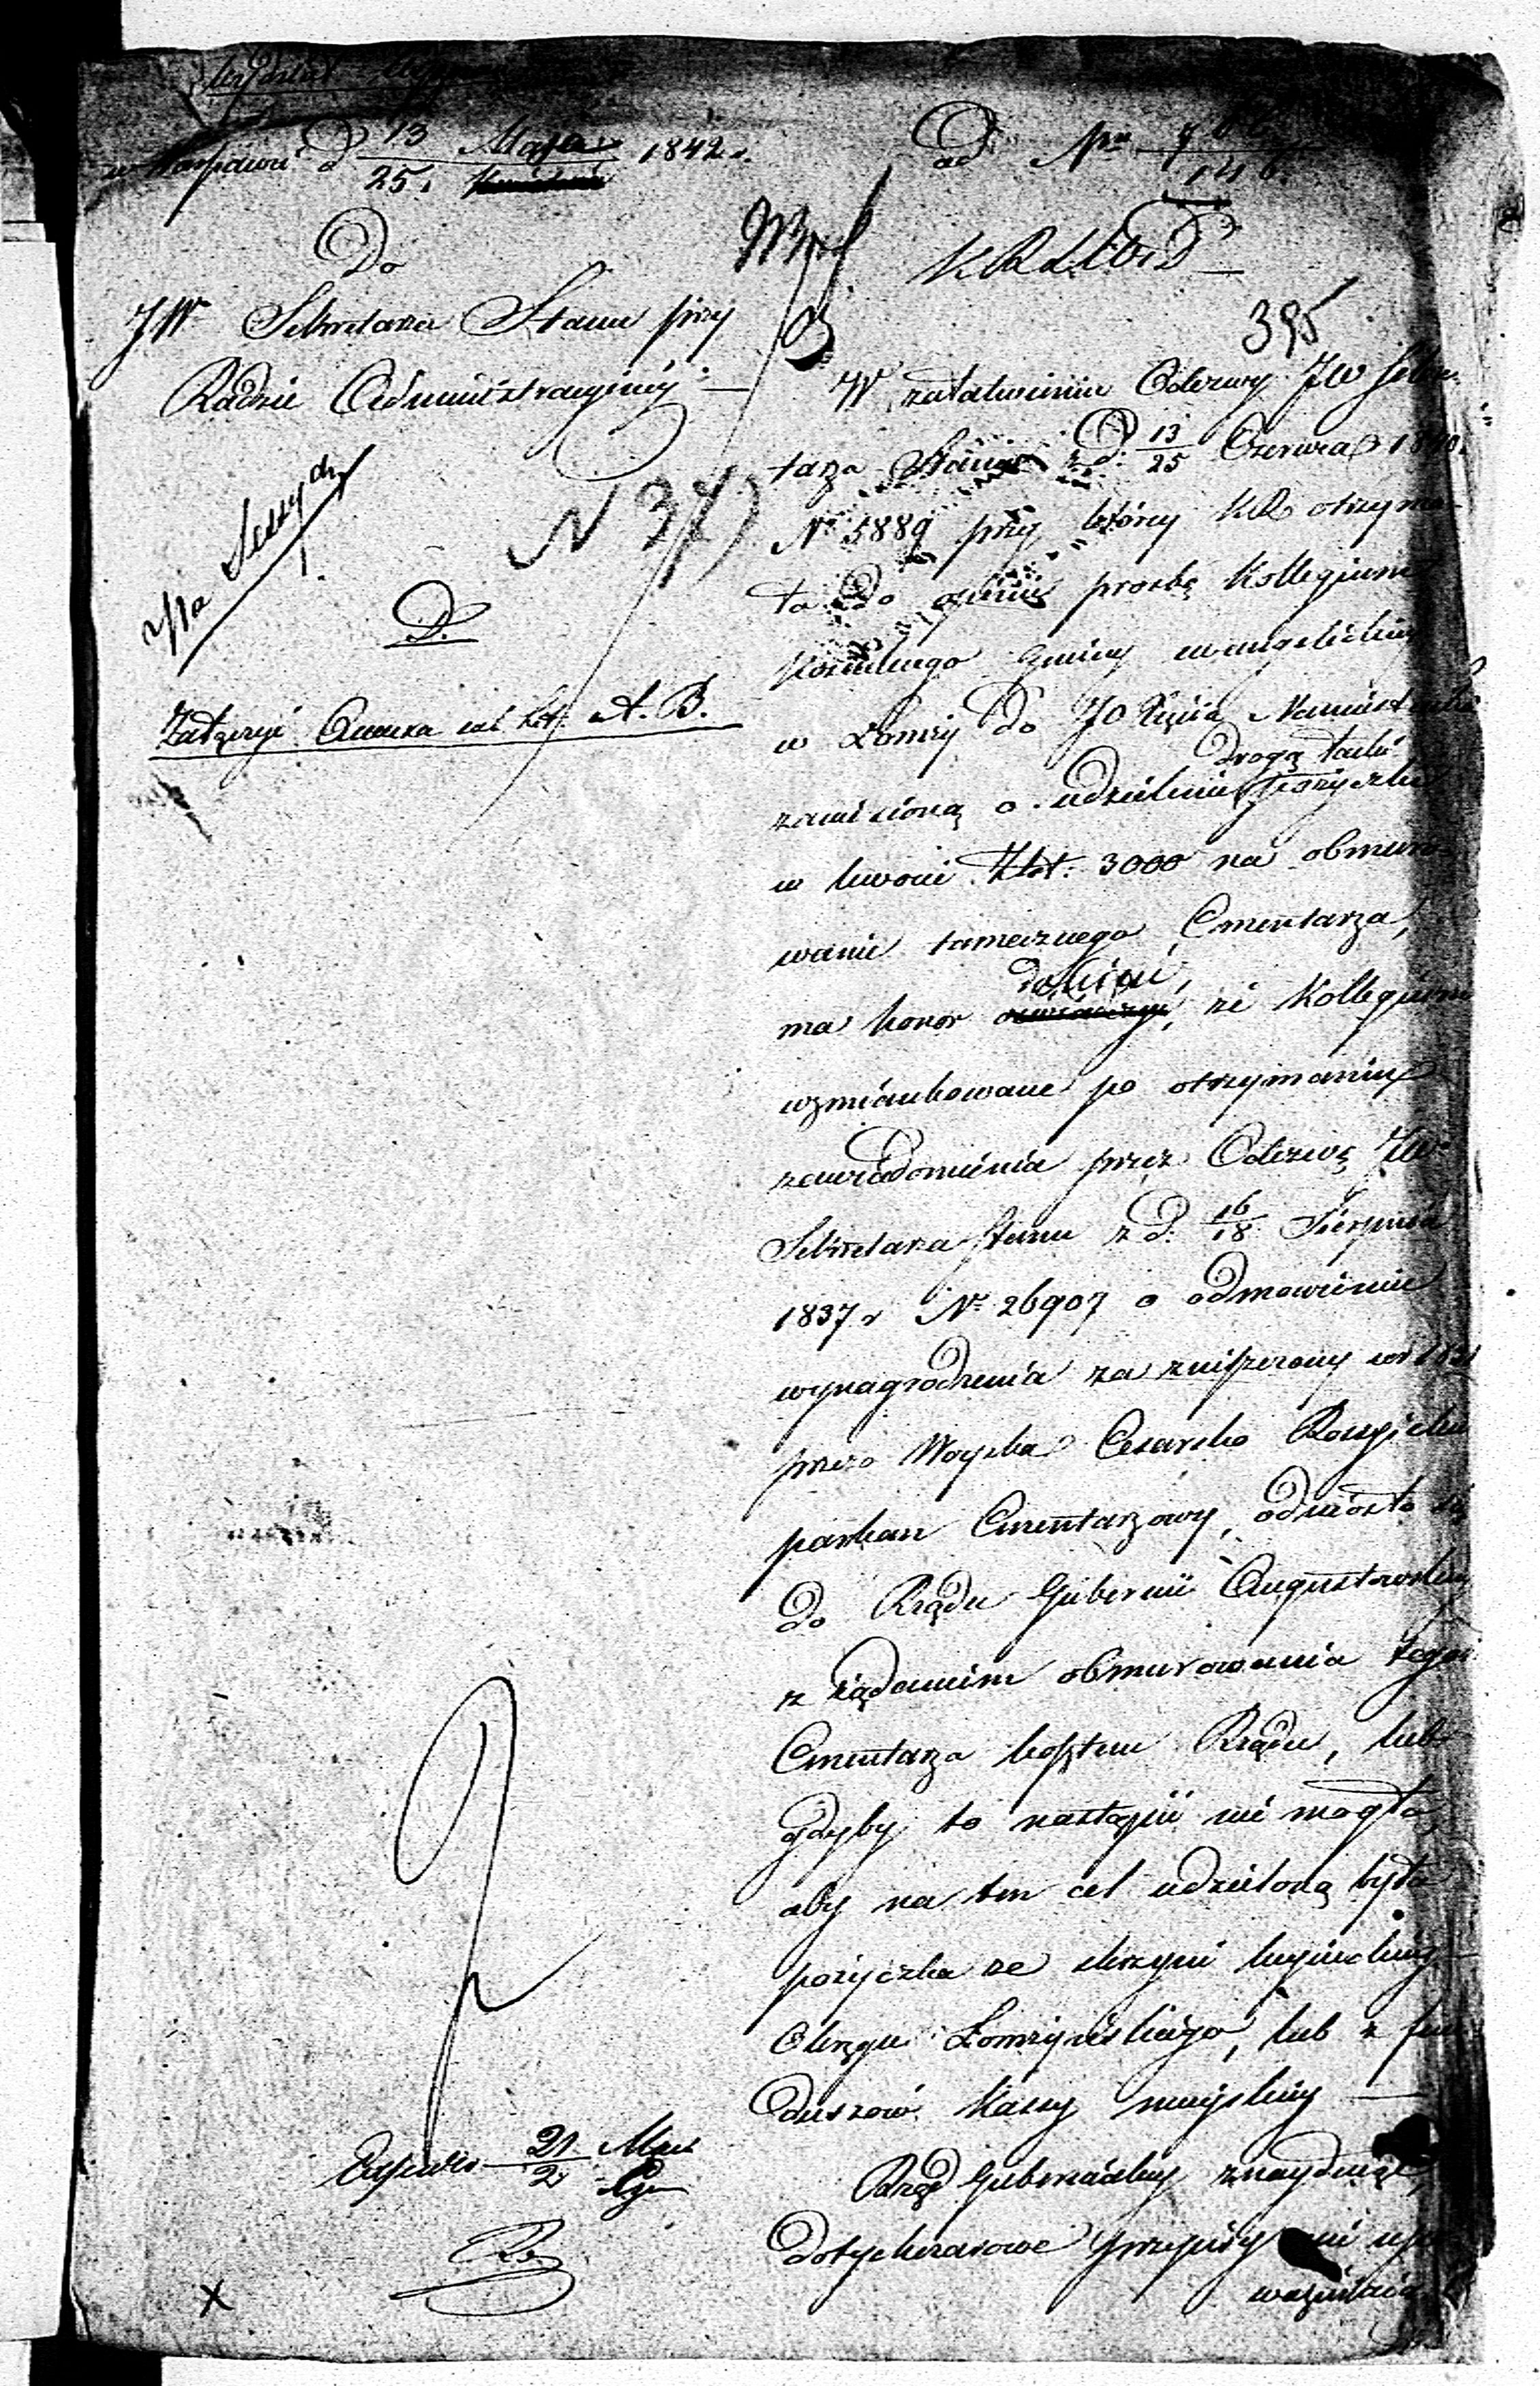 w Warszawie d 13/25 Maja 1842 r.
ad Nro
Do
JW Sekretarza Stanu przy
Radzie Administracyjnej
Na Sessyą
N 37)
D.
Załączyć Anexa sub lit: A. B.
Expedio 21 Maja
2
X
K R S W i D
395
W załatwieniu Odezwy JW Sekre-
tarza Stanu z d: 13/25 Czerwca 1840.
Nr 5889 przy którey KR otrzyma-
ła do opinii prozbę Kollegium
Kościelnego Gminy ewangelickiey
w Łomży do JO Xięcia Namiestnika
zaniesioną o udzielenie drogą łaski pożyczki
w kwocie Złot: 3000 na obmuro-
wanie tamecznego Cmentarza,
ma honor donieść, że Kollegium
wzmiankowane po otrzymaniu
zawiadomienia przez Odezwę JW
Sekretarza Stanu z d. 16/18 Sierpnia
1837 r Nr 26907 o odmówieniu
wynagrodzenia za zniszczony w r 1831
przez Woyska Cesarsko Rossyiskie
parkan Cmentarzowy, odniosło się
do Rządu Gubernii Augustowskiey
z żądaniem obmurowania tego
Cmentarza kosztem Rządu, lub
gdyby to nastąpić nie mogło,
aby na ten cel udzieloną była
pożyczka ze skrzyni
Okręgu Łomżyńskiego, lub z fun-
duszów Kassy mieyskiey —
Rząd Gubernialny znayduiąc,
dotychczasowe przepisy nie upo-
ważniaią